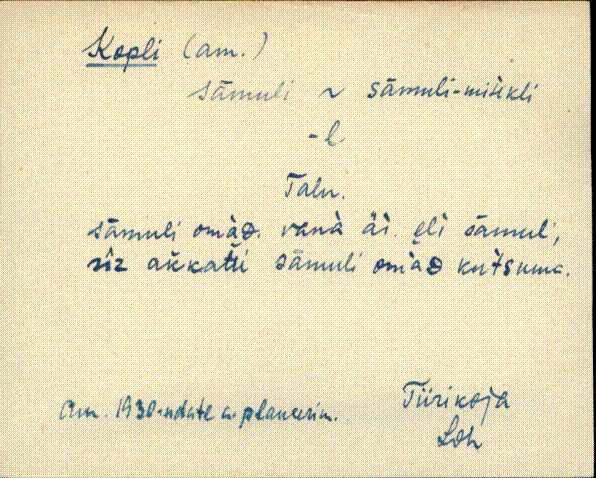 Kopli (am.)
sāmuli ~ sāmuli-mihkli
-l
Talu.
sāmuli omàᴅ. vanà äi. eli sāmuli,
siz akkatti sāmuli omàᴅ kutsuma.
Am. 1930-ndate a. planeerim.
Tiirikoja
Loh